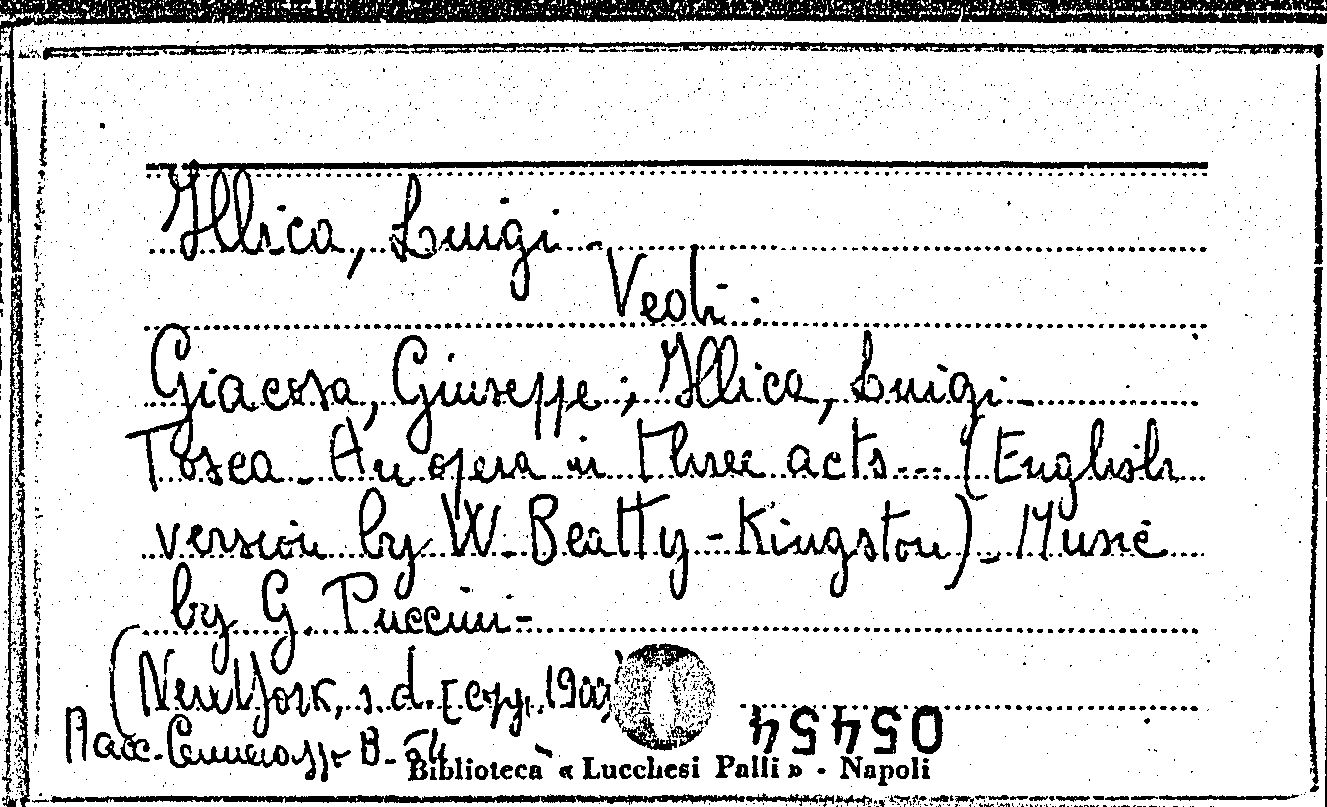 Illica, Luigi -
Vedi:
Giacosa, Giuseppe; Illica, Luigi -
Tosca - An opera in three acts... (English
version by W. Beatty-Kingston) - Music
by G. Puccini -
(New York, s. d. [copy, 1900
Racc. B - 54
05454
Biblioteca « Lucchesi Palli » - Napoli